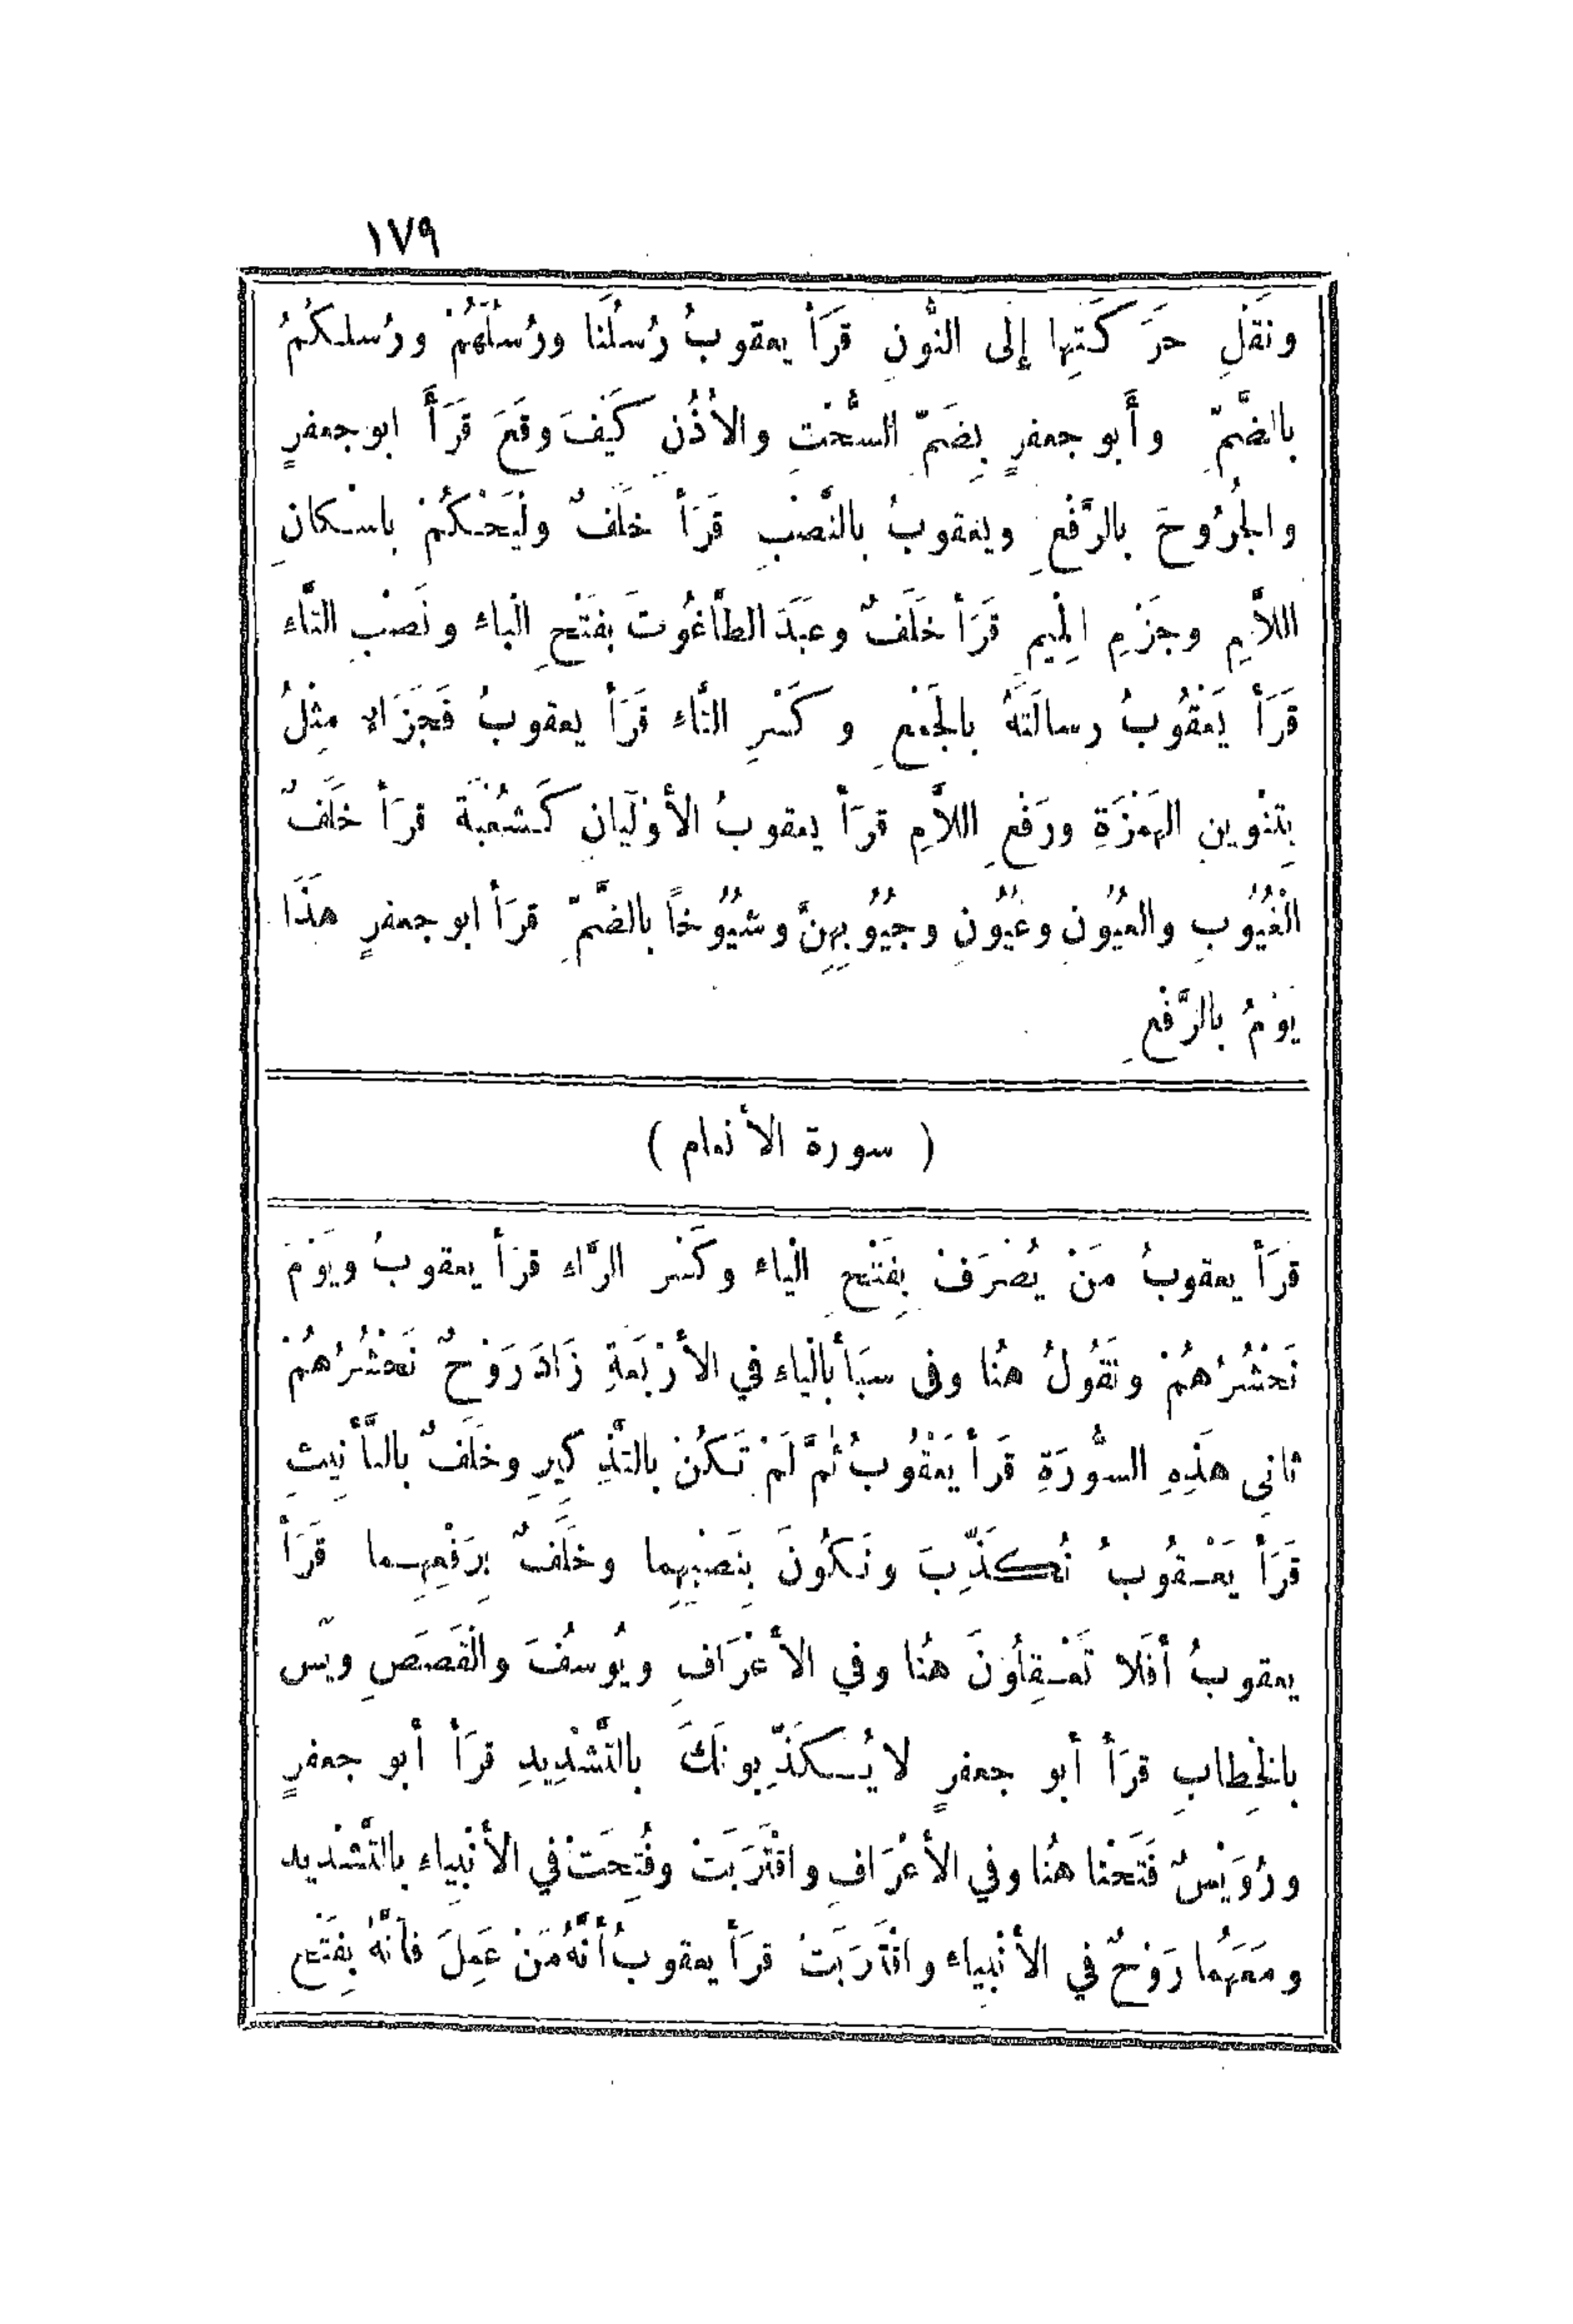 ١٧٩
ونَقْلِ حَرَكَتِها إلى النُّونِ قَرَأ يعقوبُ رُسُلُنا ورُسُلُهُمْ ورُسلكُمُ
بالضَّمِّ وأَبو جعفرٍ بِضَمِّ السُّحْتِ والأُذُنِ كَيْفَ وقَعَ قَرَأَ ابو جعفرٍ
والجُرُوحَ بالرَّفْعِ ويعقوبُ بالنَّصْبِ قَرَأ خلَفٌ ولْيَحْكُمْ باسْكانِ
اللاَّمِ وجَزْمِ الْمِيمِ قَرَأ خَلَفٌ وعبَدَ الطَّاغُوتَ بفَتْحِ الْباء ونَصْبِ التَّاء
قَرَأ يَعْقُوبُ رسالَتهُ بالجَمْعِ وكَسْرِ التَّاء قَرَأ يعقوبُ فَجَزَاء مِثْلُ
بِتنْوينِ الهَمْزَةِ ورَفْعِ اللاَّمِ قرَأ يعقوبُ الأوْلَيانِ كَشُعْبَةَ قرَأ خلَفٌ
الْغُيُوبِ والعُيُونِ وعُيُونِ وجُيُوبِهِنَّ وشُيُوخاً بالضَّمِّ قرَأ ابو جعفرٍ هذَا
يَوْمُ بالرَّفْعِ
( سورة الأنعام )
قَرَأ يعقوبُ مَنْ يُصْرَفْ بِفَتْحِ الْياء وكَسْر الرَّاء قرَأ يعقوبُ ويَوْمَ
نَحْشُرُهُمْ ونَقُولُ هُنا وفى سبَأ بالْياء في الأرْبَعةِ زَادَ رَوْحٌ نَحْشُرُهُمْ
ثانى هَذِهِ السُّورَةِ قَرأ يَعْقُوبُ ثُمَّ لَمْ تَكُنْ بالتَّذْكِيرِ وخَلَفٌ بالتَّأنِيثِ
قَرَأ يَعْقُوبُ نُكَذِّبَ ونَكُونَ بِنَصْبِهِما وخَلَفٌ بِرَفْعِهِما قَرَأ
يعقوبُ أفَلا تَعْقِلُونَ هُنا وفي الأعْرَافِ ويُوسُفَ والْقَصَصِ ويٓس
بالخِطابِ قرَأ أبو جعفرٍ لا يُكَذِّبونَكَ بالتَّشْدِيدِ قرَأ أبو جعفرٍ
ورُوَيْسٌ فَتَحْنا هُنا وفي الأعْرَافِ واقْتَرَبَتْ وفُتِحَتْ في الأنْبِياء بالتَّشْديد
ومَعَهُما رَوْحٌ في الأنْبِياء واقْتَرَبَتْ قرَأ يعقوبُ أنَّهُ مَنْ عَمِلَ فأنَّهُ بِفَتْحِ